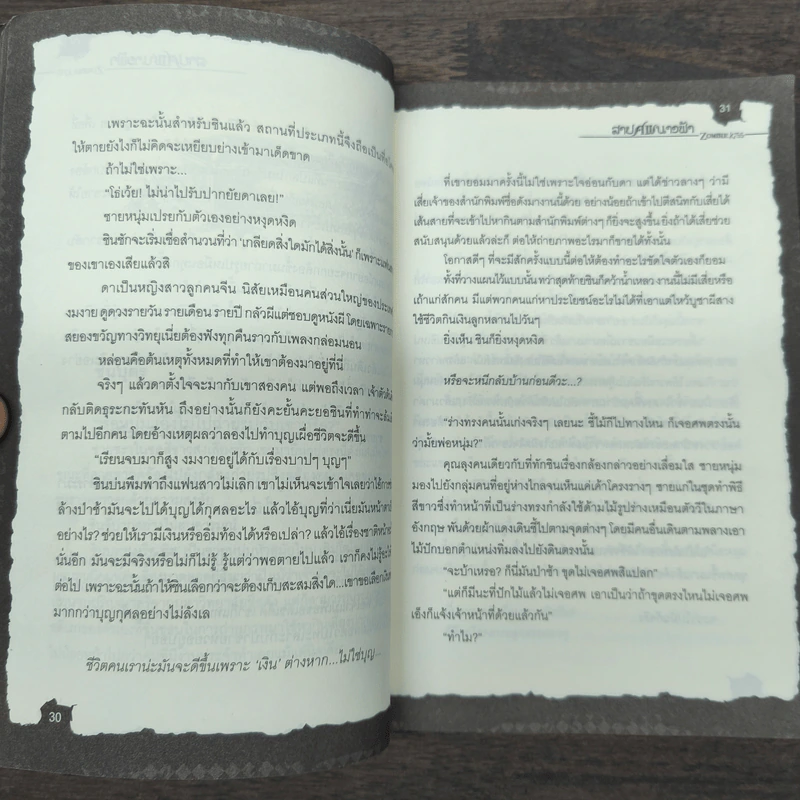 เพราะฉะนั้นสำหรับซินแล้ว สถานที่ประเภทนี้จึงถือเป็นที่
ให้ตายยังไงก็ไม่คิดจะเหยียบย่างเข้ามาเด็ดขาด
ถ้าไม่ใช่เพราะ...
“โธ่เว้ย! ไม่น่าไปรับปากยัยดาเลย!”
ชายหนุ่มเปรยกับตัวเองอย่างหงุดหงิด
ซินชักจะเริ่มเชื่อสำนวนที่ว่า ‘เกลียดสิ่งใดมักได้สิ่งนั้น’ ก็เพราะ
ของเขาเองเสียแล้วสิ
ดาเป็นหญิงสาวลูกคนจีน นิสัยเหมือนคนส่วนใหญ่ของประเทศ
งมงาย ดูดวงรายวัน รายเดือน รายปี กลัวผีแต่ชอบดูหนังผี โดยเฉพาะ
สยองขวัญทางวิทยุเนี่ยต้องฟังทุกคืนราวกับเพลงกล่อมนอน
หล่อนคือต้นเหตุทั้งหมดที่ทำให้เขาต้องมาอยู่ที่นี่
จริงๆ แล้วดาตั้งใจจะมากับเขาสองคน แต่พอถึงเวลา เจ้าตัวดัน
กลับติดธุระกะทันหัน ถึงอย่างนั้นก็ยังคะยั้นคะยอซินที่ทำท่าจะล้ม
ตามไปอีกคน โดยอ้างเหตุผลว่าลองไปทำบุญเผื่อชีวิตจะดีขึ้น
“เรียนจบมาก็สูง งมงายอยู่ได้กับเรื่องบาปๆ บุญๆ”
ซินบ่นพึมพำถึงแฟนสาวไม่เลิก เขาไม่เห็นจะเข้าใจเลยว่าไอ้การ
ล้างป่าช้ามันจะไปได้บุญได้กุศลอะไร แล้วไอ้บุญที่ว่าเนี่ยมันหน้าตา
อย่างไร? ช่วยให้เรามีเงินหรืออิ่มท้องได้หรือเปล่า? แล้วไอ้เรื่องชาติหน้า
นั่นอีก มันจะมีจริงหรือไม่ก็ไม่รู้ รู้แต่ว่าพอตายไปแล้ว เราก็คงไม่รู้
ต่อไป เพราะฉะนั้นถ้าให้ซินเลือกว่าจะต้องเก็บสะสมสิ่งใด...เขาขอเลือก
มากกว่าบุญกุศลอย่างไม่ลังเล
ชีวิตคนเราน่ะมันจะดีขึ้นเพราะ ‘เงิน’ ต่างหาก...ไม่ใช่บุญ...
30
31
สาปศพนางฟ้า
ที่เขายอมมาครั้งนี้ไม่ใช่เพราะใจอ่อนกับดา แต่ได้ข่าวลางๆ ว่ามี
เสี่ยเจ้าของสำนักพิมพ์ชื่อดังมางานนี้ด้วย อย่างน้อยถ้าเข้าไปตีสนิทกับเสี่ยได้
เส้นสายที่จะเข้าไปหากินตามสำนักพิมพ์ต่างๆ ก็ยิ่งจะสูงขึ้น ยิ่งถ้าได้เสี่ยช่วย
สนับสนุนด้วยแล้วล่ะก็ ต่อให้ถ่ายภาพอะไรมาก็ขายได้ทั้งนั้น
โอกาสดีๆ ที่จะมีสักครั้งแบบนี้ต่อให้ต้องทำอะไรขัดใจตัวเองก็ยอม
ทั้งที่วางแผนไว้แบบนั้น ทว่าสุดท้ายซินก็คว้าน้ำเหลว งานนี้ไม่มีเสี่ยหรือ
เถ้าแก่สักคน มีแต่พวกคนแก่หาประโยชน์อะไรไม่ได้ที่เอาแต่ไหว้บูชาผีสาง
ใช้ชีวิตกินเงินลูกหลานไปวันๆ
ยิ่งเห็น ซินก็ยิ่งหงุดหงิด
หรือจะหนีกลับบ้านก่อนดีวะ...?
“ร่างทรงคนนั้นเก่งจริงๆ เลยนะ ชี้ไม้กี่ไปทางไหน ก็เจอศพตรงนั้น
ว่ามั้ยพ่อหนุ่ม?”
คุณลุงคนเดียวกับที่ทักซินเรื่องกล้องกล่าวอย่างเลื่อมใส ชายหนุ่ม
มองไปยังกลุ่มคนที่อยู่ห่างไกลจนเห็นแค่เค้าโครงรางๆ ชายแก่ในชุดทำพิธี
สีขาวซึ่งทำหน้าที่เป็นร่างทรงกำลังใช้ด้ามไม้รูปร่างเหมือนตัววีในภาษา
อังกฤษ พันด้วยผ้าแดงเดินชี้ไปตามจุดต่างๆ โดยมีคนอื่นเดินตามพลางเอา
ไม้ปักบอกตำแหน่งทิ่มลงไปยังดินตรงนั้น
“จะบ้าเหรอ? ก็นี่มันป่าช้า ขุดไม่เจอศพสิแปลก”
“แต่ก็มีนะที่ปักไม้แล้วไม่เจอศพ เอาเป็นว่าถ้าขุดตรงไหนไม่เจอศพ
เอ็งก็แจ้งเจ้าหน้าที่ด้วยแล้วกัน”
“ทำไม?”